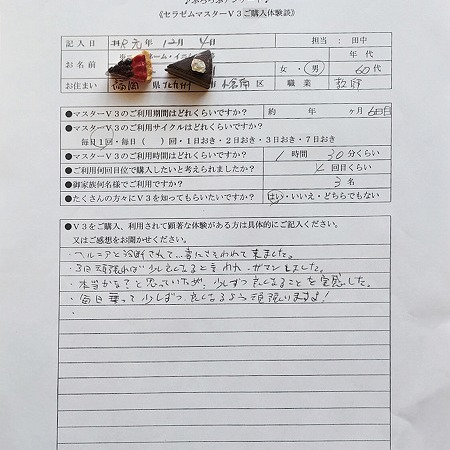 《セラゼムマスターV3ご購入体験談》
記入日 R元年 12月 4日 担当：田中
お名前 女・男 60代 年代
お住まい 福岡県北九州 小倉南区 職業 教師
●マスターV3のご利用期間はどれくらいですか？ 約 年 ヶ月 6日目
●マスターV3のご利用サイクルはどれくらいですか？
毎日1回・毎日（ ）回・1日おき・2日おき・3日おき・7日おき
●マスターV3のご利用時間はどれくらいですか？ 1時間 30分くらい
●ご利用何回目位で購入したいと考えられましたか？ 4回目くらい
●御家族何名様でご利用ですか？ 3名
●たくさんの方々にV3を知ってもらいたいですか？ はい・いいえ・どちらでもない
●V3をご購入、利用されて顕著な体験がある方は具体的にご記入ください。
又はご感想をお聞かせください。
・ヘルニアと診断されて…妻にさそわれて来ました。
・3日頑張れば少し良くなると言われ、ガマンしました。
・本当かな？と思っていたが、少しずつ良くなることを実感した。
・毎日乗って少しずつ良くなるよう頑張ります！
・